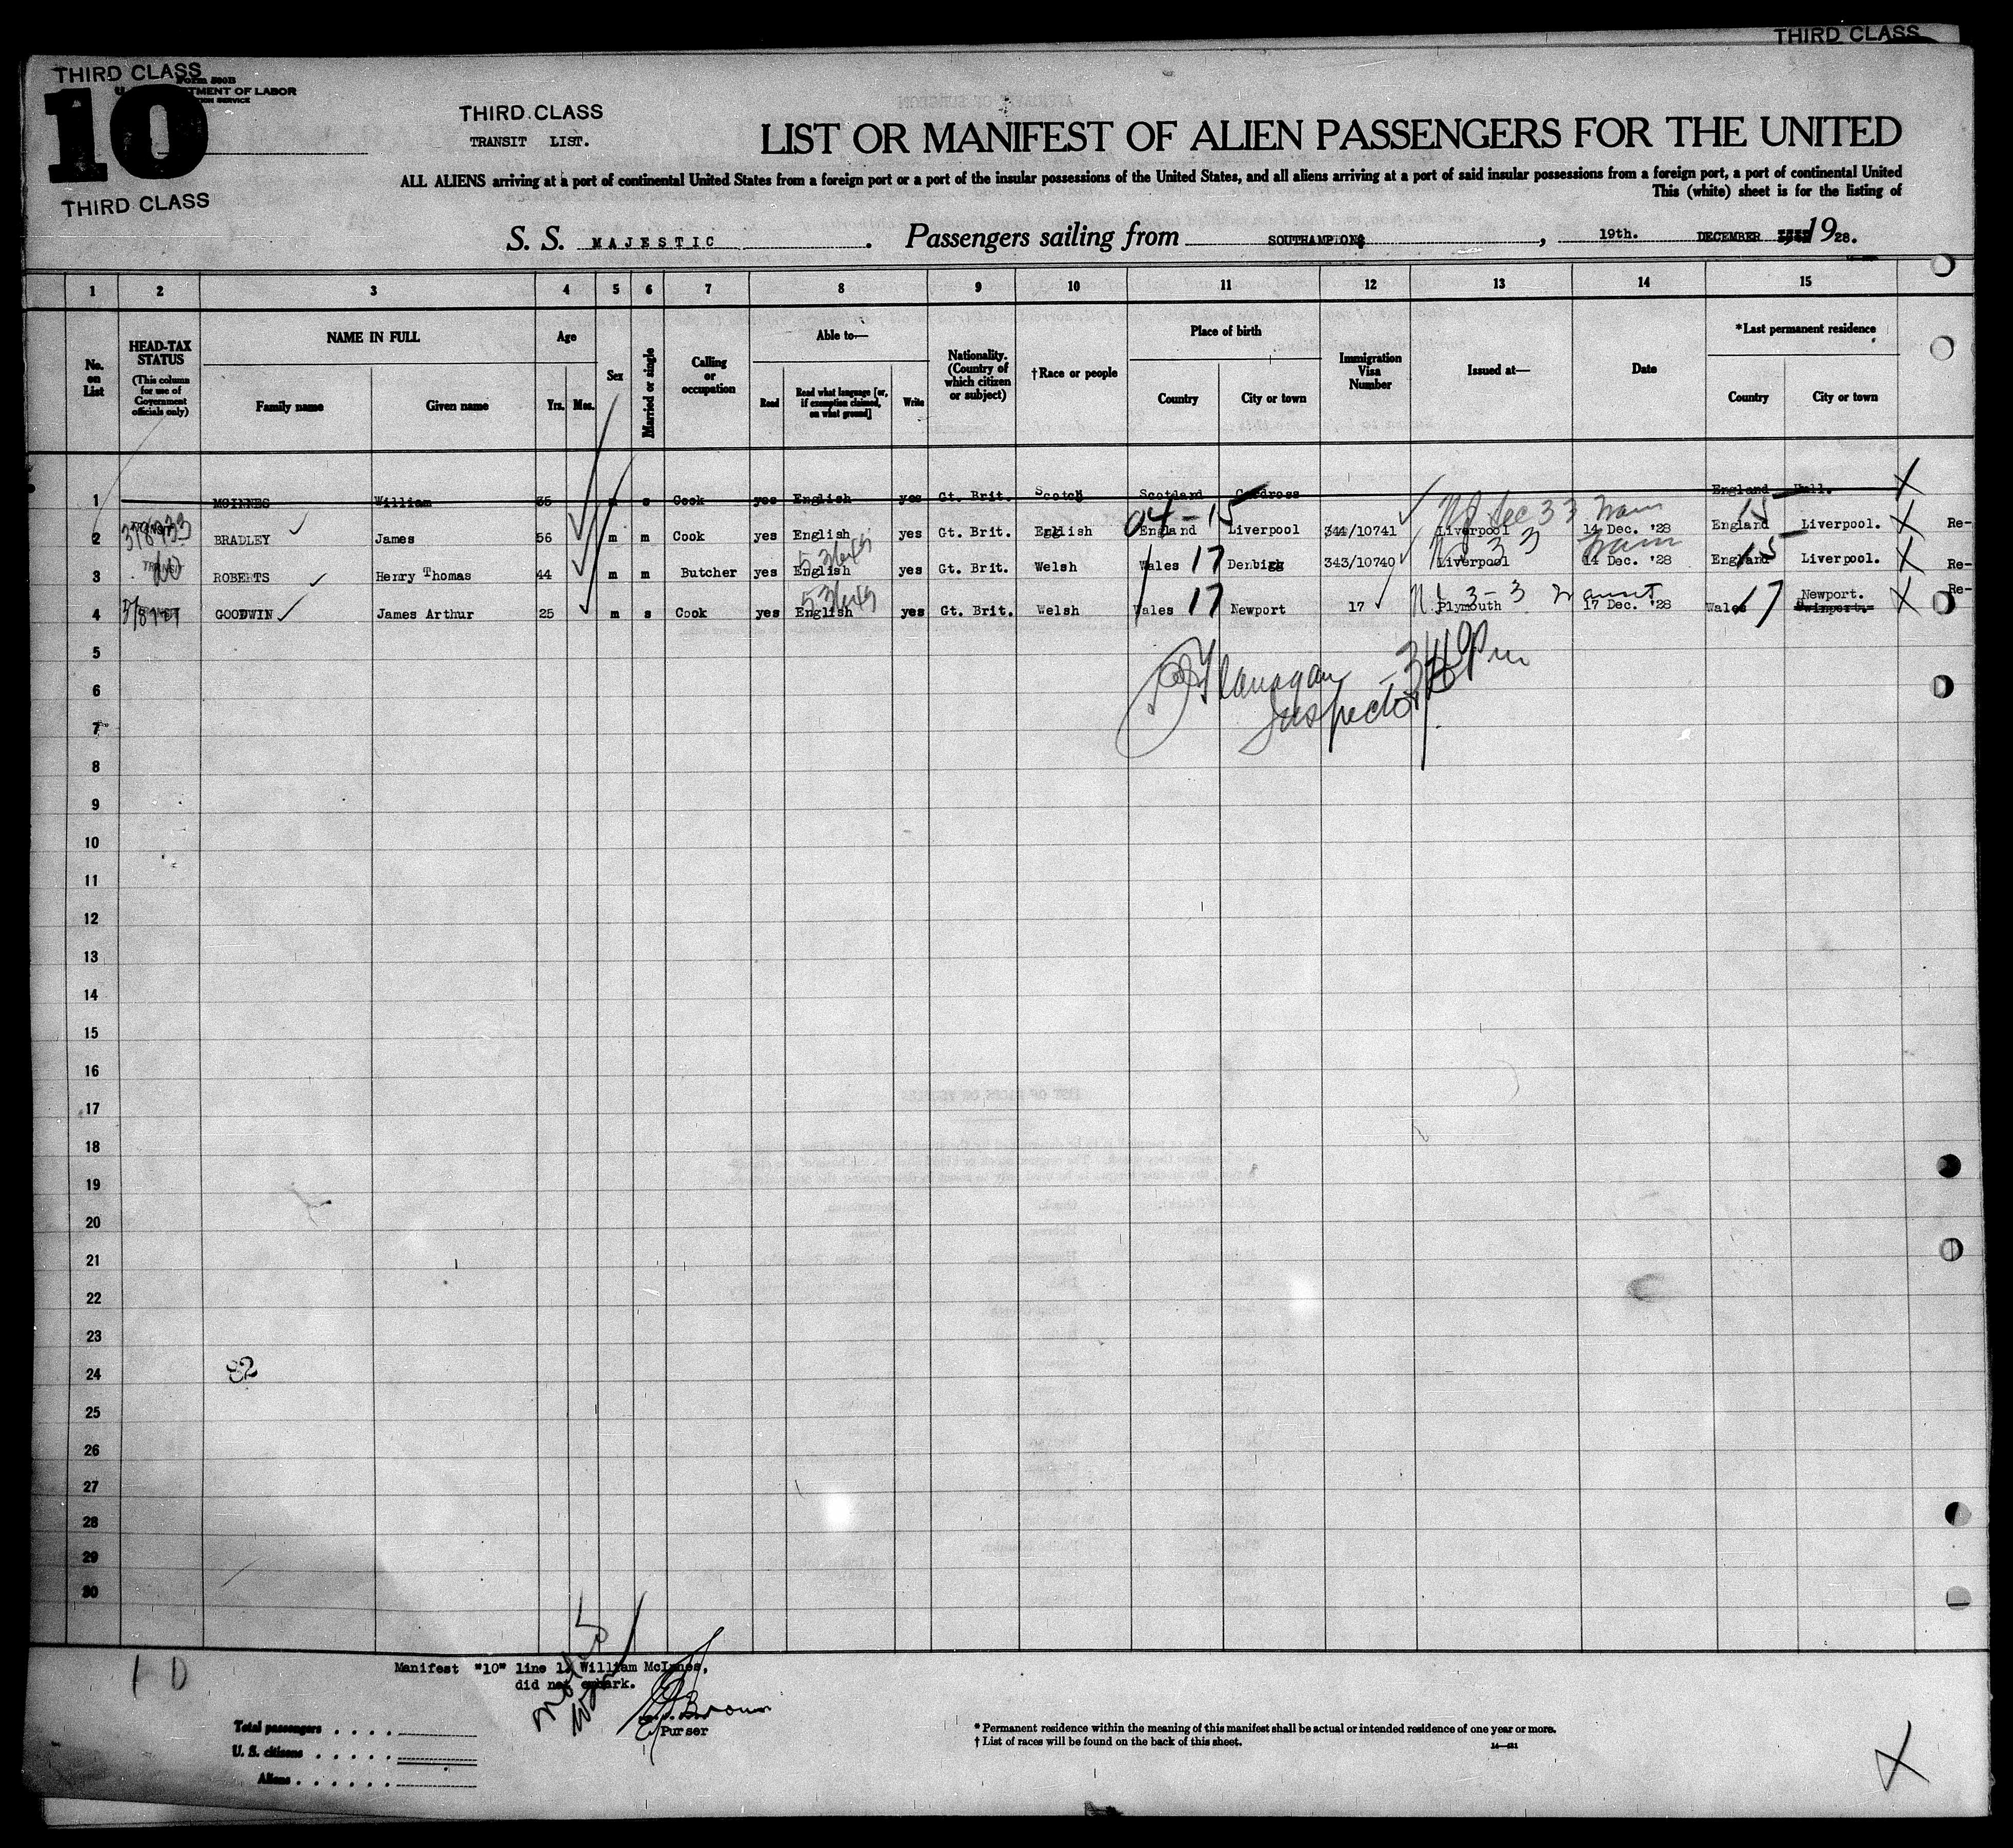 THIRD CLASS
THIRD CLASS
Form 500B
U. S. DEPARTMENT OF LABOR
SERVICE
10
THIRD CLASS
THIRD CLASS
TRANSIT LIST.
LIST OR MANIFEST OF ALIEN PASSENGERS FOR THE UNITED
ALL ALIENS arriving at a port of continental United States from a foreign port or a port of the insular possessions of the United States, and all aliens arriving at a port of said insular possessions from a foreign port, a port of continental United
This (white) sheet is for the listing of
S. S. MAJESTIC. Passengers sailing from SOUTHAMPTON, 19th. DECEMBER 1928.
1 2 3 4 5 6 7 8 9 10 11 12 13 14 15
No. on List
HEAD-TAX STATUS (This column for use of Government officials only)
NAME IN FULL
Family name Given name
Age
Yrs. Mos.
Sex
Married or single
Calling or occupation
Able to—
Read Read what language [or, if exemption claimed, on what ground] Write
Nationality. (Country of which citizen or subject)
†Race or people
Place of birth
Country City or town
Immigration Visa Number
Issued at—
Date
*Last permanent residence
Country City or town
1 MCINNES William 35 m s Cook yes English yes Gt. Brit. Scotch Scotland Cardross England Hull.
2 BRADLEY James 56 m m Cook yes English yes Gt. Brit. English 04-15 England Liverpool 344/10741 Liverpool 14 Dec. '28 15 England Liverpool. Re-
3 TRANSIT ROBERTS Henry Thomas 44 m m Butcher yes English yes Gt. Brit. Welsh Wales 17 Denbigh 343/10740 Liverpool 14 Dec. '28 England 15 Liverpool. Re-
4 GOODWIN James Arthur 25 m s Cook yes English yes Gt. Brit. Welsh Wales 17 Newport 17 Plymouth 17 Dec. '28 Wales 17 Newport. Re-
5
Flanagan
6
Inspector
7
8
9
10
11
12
13
14
15
16
17
18
19
20
21
22
23
24
82
25
26
27
28
29
30
10
Manifest "10" line 1. William McInnes,
did not embark.
Brown
Purser
Total passengers
U. S. citizens
Aliens
* Permanent residence within the meaning of this manifest shall be actual or intended residence of one year or more.
† List of races will be found on the back of this sheet.